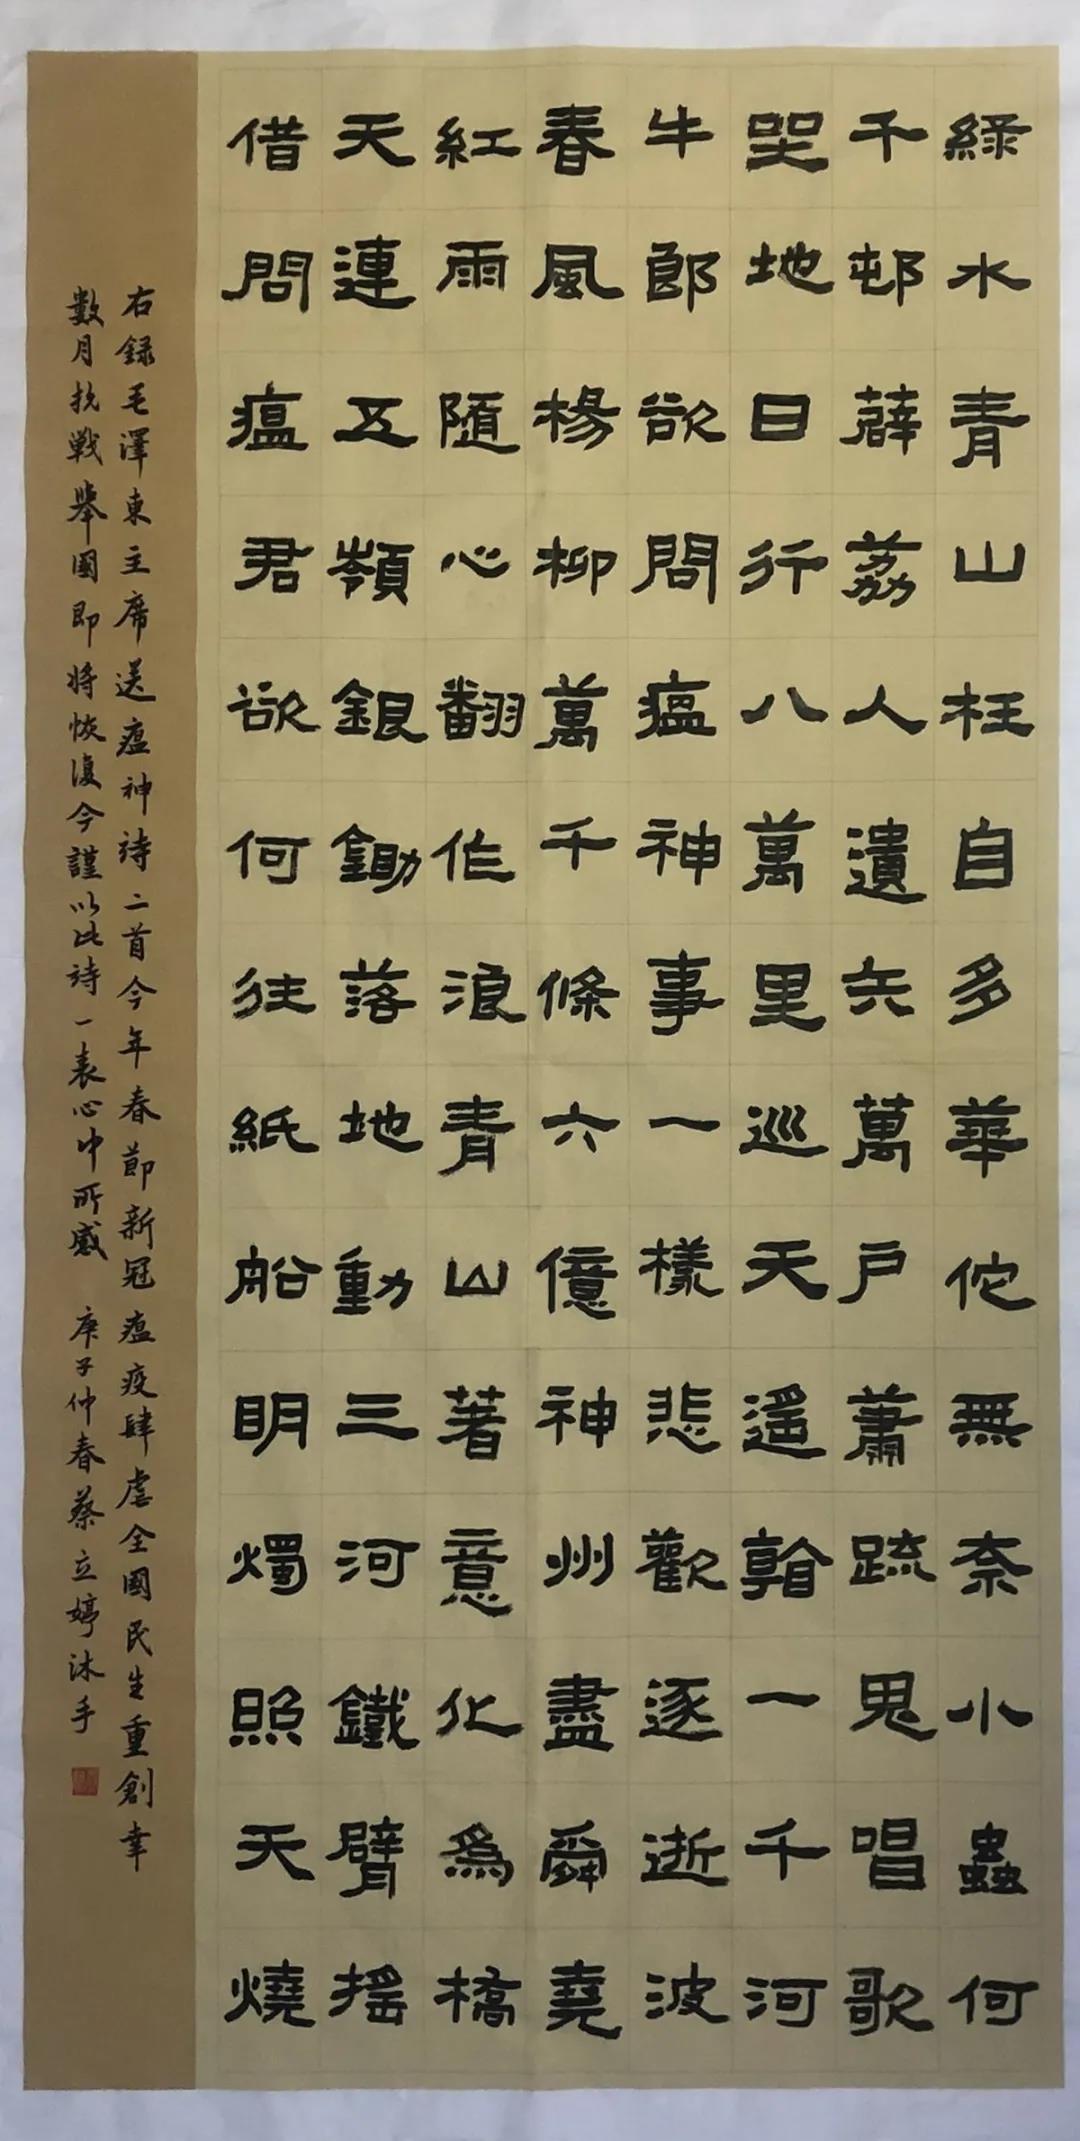 綠水青山枉自多華佗無奈小蟲何
千邨薜荔人遺矢萬戶蕭疏鬼唱歌
坐地日行八萬里巡天遙看一千河
牛郎欲問瘟神事一樣悲歡逐逝波
春風楊柳萬千條六億神州盡舜堯
紅雨隨心翻作浪青山著意化為橋
天連五嶺銀鋤落地動三河鐵臂搖
借問瘟君欲何往紙船明燭照天燒
右録毛澤東主席送瘟神詩二首今年春節新冠瘟疫肆虐全國民生重創幸
數月抗戰舉國即將恢復今謹以此詩一表心中所感 庚子仲春蔡立婷沐手